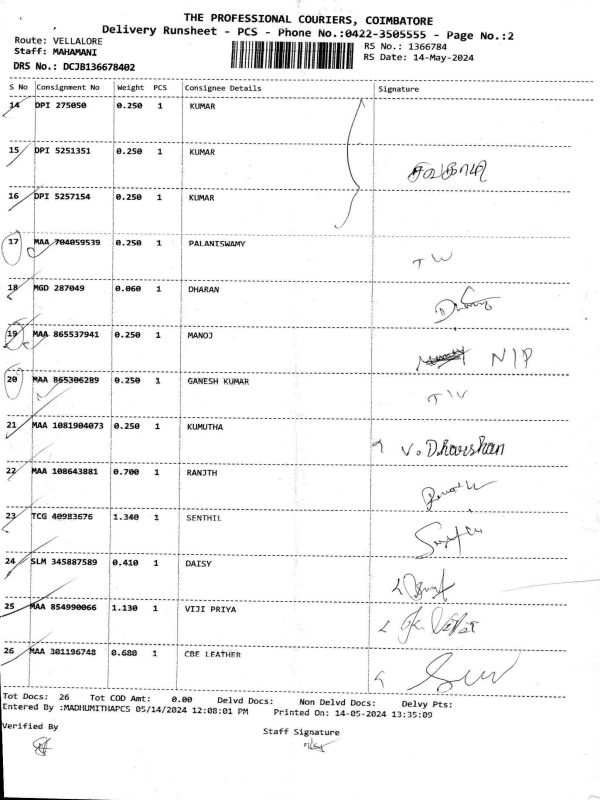 THE PROFESSIONAL COURIERS, COIMBATORE
Delivery Runsheet - PCS - Phone No.:0422-3505555 - Page No.:2
Route: VELLALORE RS No.: 1366784
Staff: MAHAMANI RS Date: 14-May-2024
DRS No.: DCJB136678402
S No Consignment No Weight PCS Consignee Details Signature
14 DPI 275050 0.250 1 KUMAR
15 DPI 5251351 0.250 1 KUMAR
16 DPI 5257154 0.250 1 KUMAR
17 MAA 704059539 0.250 1 PALANISWAMY
18 MGD 287049 0.060 1 DHARAN
19 MAA 865537941 0.250 1 MANOJ N/P
20 MAA 865306289 0.250 1 GANESH KUMAR
21 MAA 1081904073 0.250 1 KUMUTHA V. Dharshan
22 MAA 108643881 0.700 1 RANJTH
23 TCG 40983676 1.340 1 SENTHIL
24 SLM 345887589 0.410 1 DAISY
25 MAA 854990066 1.130 1 VIJI PRIYA
26 MAA 301196748 0.680 1 CBE LEATHER
Tot Docs: 26 Tot COD Amt: 0.00 Delvd Docs: Non Delvd Docs: Delvy Pts:
Entered By :MADHUMITHAPCS 05/14/2024 12:08:01 PM Printed On: 14-05-2024 13:35:09
Verified By Staff Signature